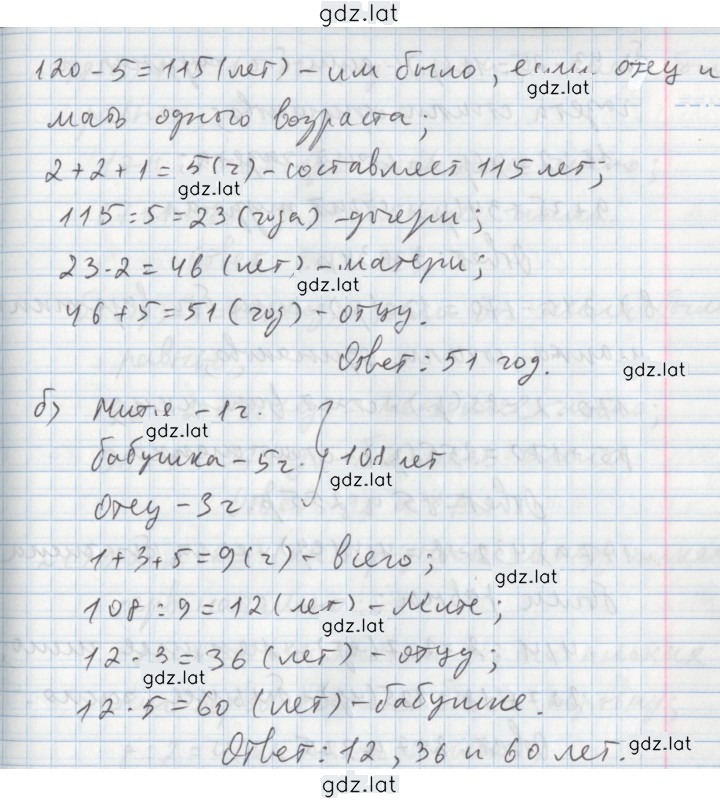 gdz.lat
120 - 5 = 115 (лет) - им было, если отец и
gdz.lat
мать одного возраста;
2 + 2 + 1 = 5 (ч) - составляет 115 лет;
gdz.lat
115 : 5 = 23 (года) - дочери;
23 · 2 = 46 (лет) - матери;
gdz.lat
46 + 5 = 51 (год) - отцу.
Ответ: 51 год.
gdz.lat
б) Митя - 1ч.
gdz.lat
бабушка - 5ч. } 108 лет
gdz.lat
отец - 3ч
1 + 3 + 5 = 9 (ч) - всего;
gdz.lat
108 : 9 = 12 (лет) - Мите;
gdz.lat
12 · 3 = 36 (лет) - отцу;
gdz.lat
12 · 5 = 60 (лет) - бабушке.
Ответ: 12, 36 и 60 лет.
gdz.lat
gdz.lat